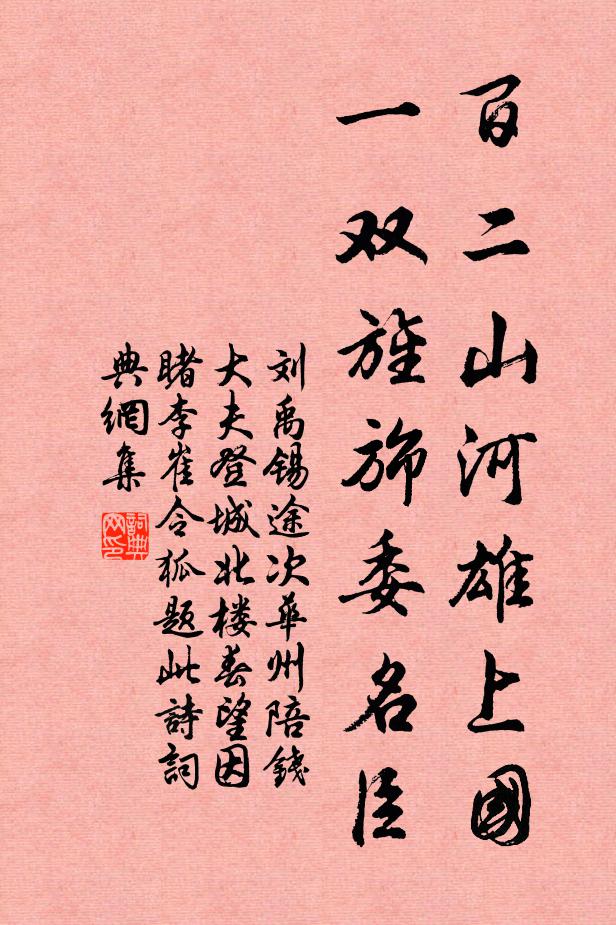 百二山河雄上國
一双旌斾委名臣
刘禹锡途次華州陪錢
大夫登城北楼春望因
睹李崔令狐题此詩詞
典網集
詞典网印